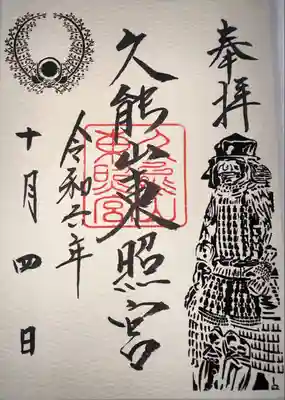 奉拝
久能山東照宮
令和二年
十月四日